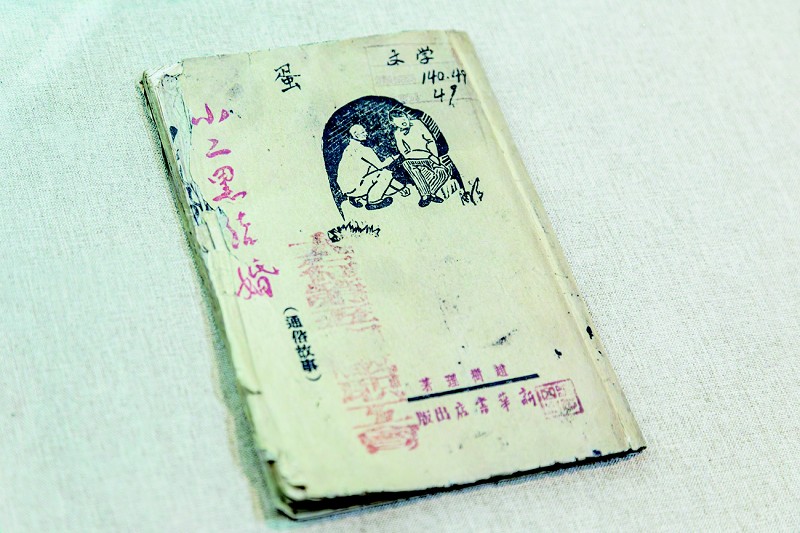 蛋
文学
140.49
49
小二黑結婚
（通俗故事）
趙樹理著
新華書店出版